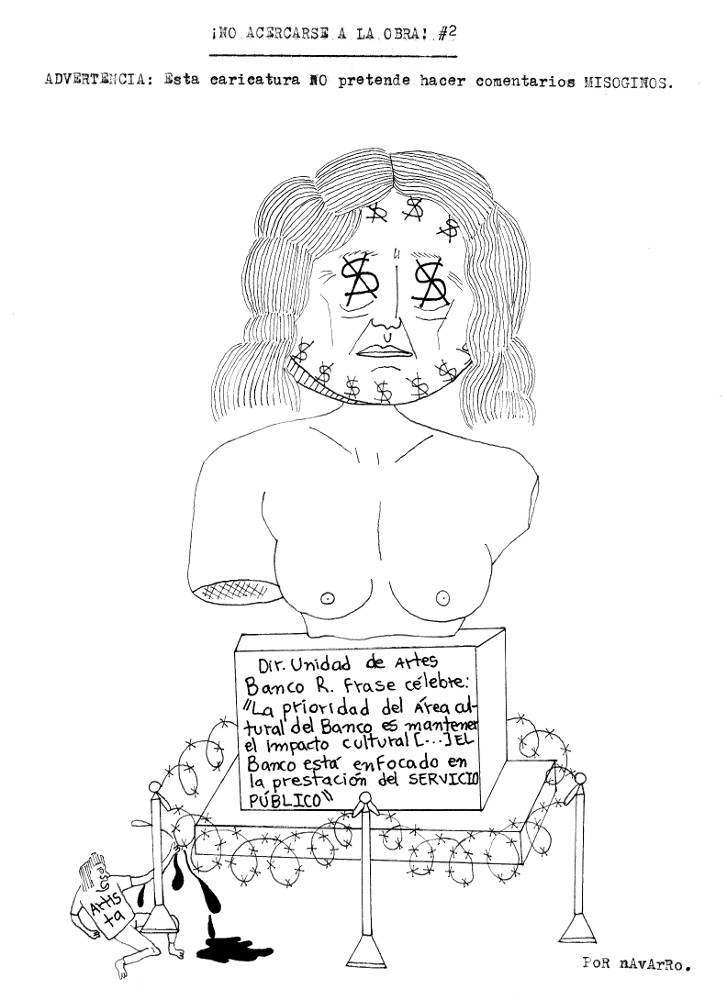 ¡NO ACERCARSE A LA OBRA! #2
ADVERTENCIA: Esta caricatura NO pretende hacer comentarios MISOGINOS.
$ $ $
$ $
$ $ $ $ $ $ $
Dir. Unidad de Artes
Banco R. Frase célebre:
"La prioridad del Área cul-
tural del Banco es mantener
el impacto cultural [...] EL
Banco está enfocado en
la prestación del SERVICIO
PÚBLICO"
Artis
ta
POR nAvArRo.